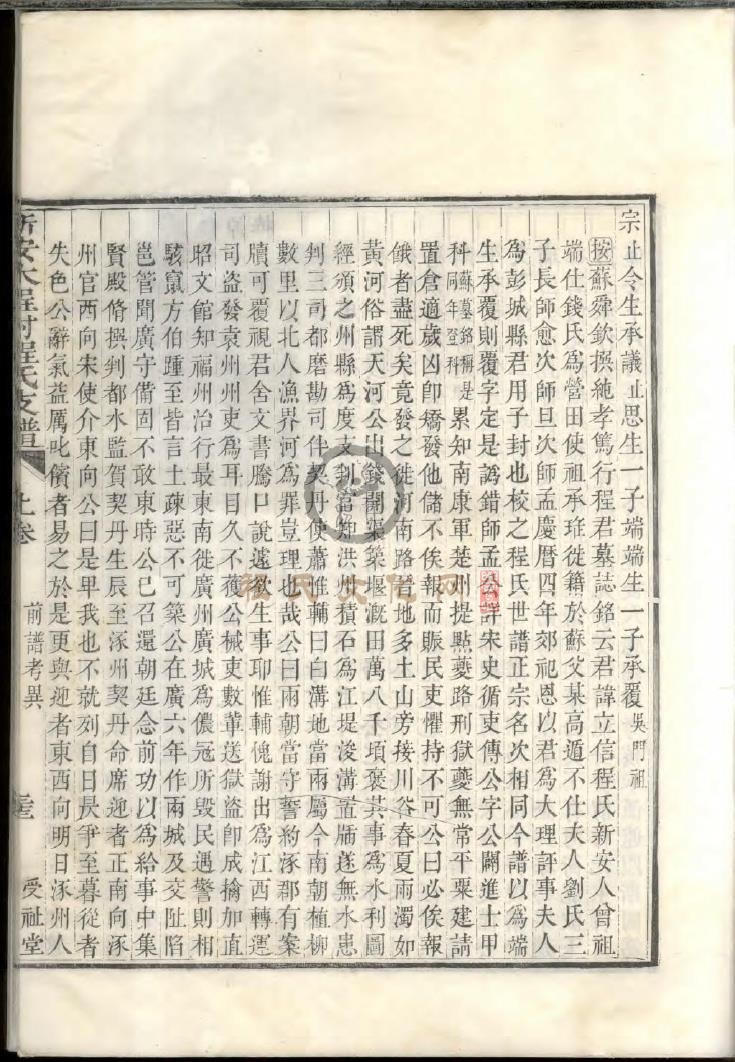 宗止令生承議止思生一子端端生一子承覆吳門祖
按蘇舜欽撰純孝篤行程君墓誌銘云君諱立信程氏新安人曾祖
端仕錢氏為營田使祖承琟徙籍於蘇父某高遁不仕夫人劉氏三
子長師愈次師旦次師孟慶曆四年郊祀恩以君為大理評事夫人
為彭城縣君用子封也校之程氏世譜正宗名次相同今譜以為端
生承覆則覆字定是譌錯師孟公詳宋史循吏傳公字公闢進士甲
科蘇墓銘稱是同年登科累知南康軍楚州提點夔路刑獄夔無常平粟建請
置倉適歲凶卽矯發他儲不俟報而賑民吏懼持不可公曰必俟報
餓者盡死矣竟發之徙河南路晉地多土山旁接川谷春夏雨濁如
黃河俗謂天河公出錢開渠築堰漑田萬八千頃裒其事為水利圖
經頒之州縣為度支判官知洪州積石為江堤浚溝置牐遂無水患
判三司都磨勘司伴契丹使蕭惟輔曰白溝地當兩屬今南朝植柳
數里以北人漁界河為罪豈理也哉公曰兩朝當守誓約涿郡有案
牘可覆視君舍文書騰口說遽欲生事耶惟輔愧謝出為江西轉運
司盜發袁州州吏為耳目久不獲公械吏數輩送獄盜卽成擒加直
昭文館知福州治行最東南徙廣州廣城為儂冠所毀民遇警則相
駭竄方伯踵至皆言土疎惡不可築公在廣六年作兩城及交阯陷
邕管聞廣守備固不敢東時公已召還朝廷念前功以為給事中集
賢殿脩撰判都水監賀契丹生辰至涿州契丹命席迎者正南向涿
州官西向宋使介東向公曰是卑我也不就列自日昃爭至暮從者
失色公辭氣益厲叱儐者易之於是更與迎者東西向明日涿州人
新安大程村程氏支譜 上卷 前譜考異 受祉堂